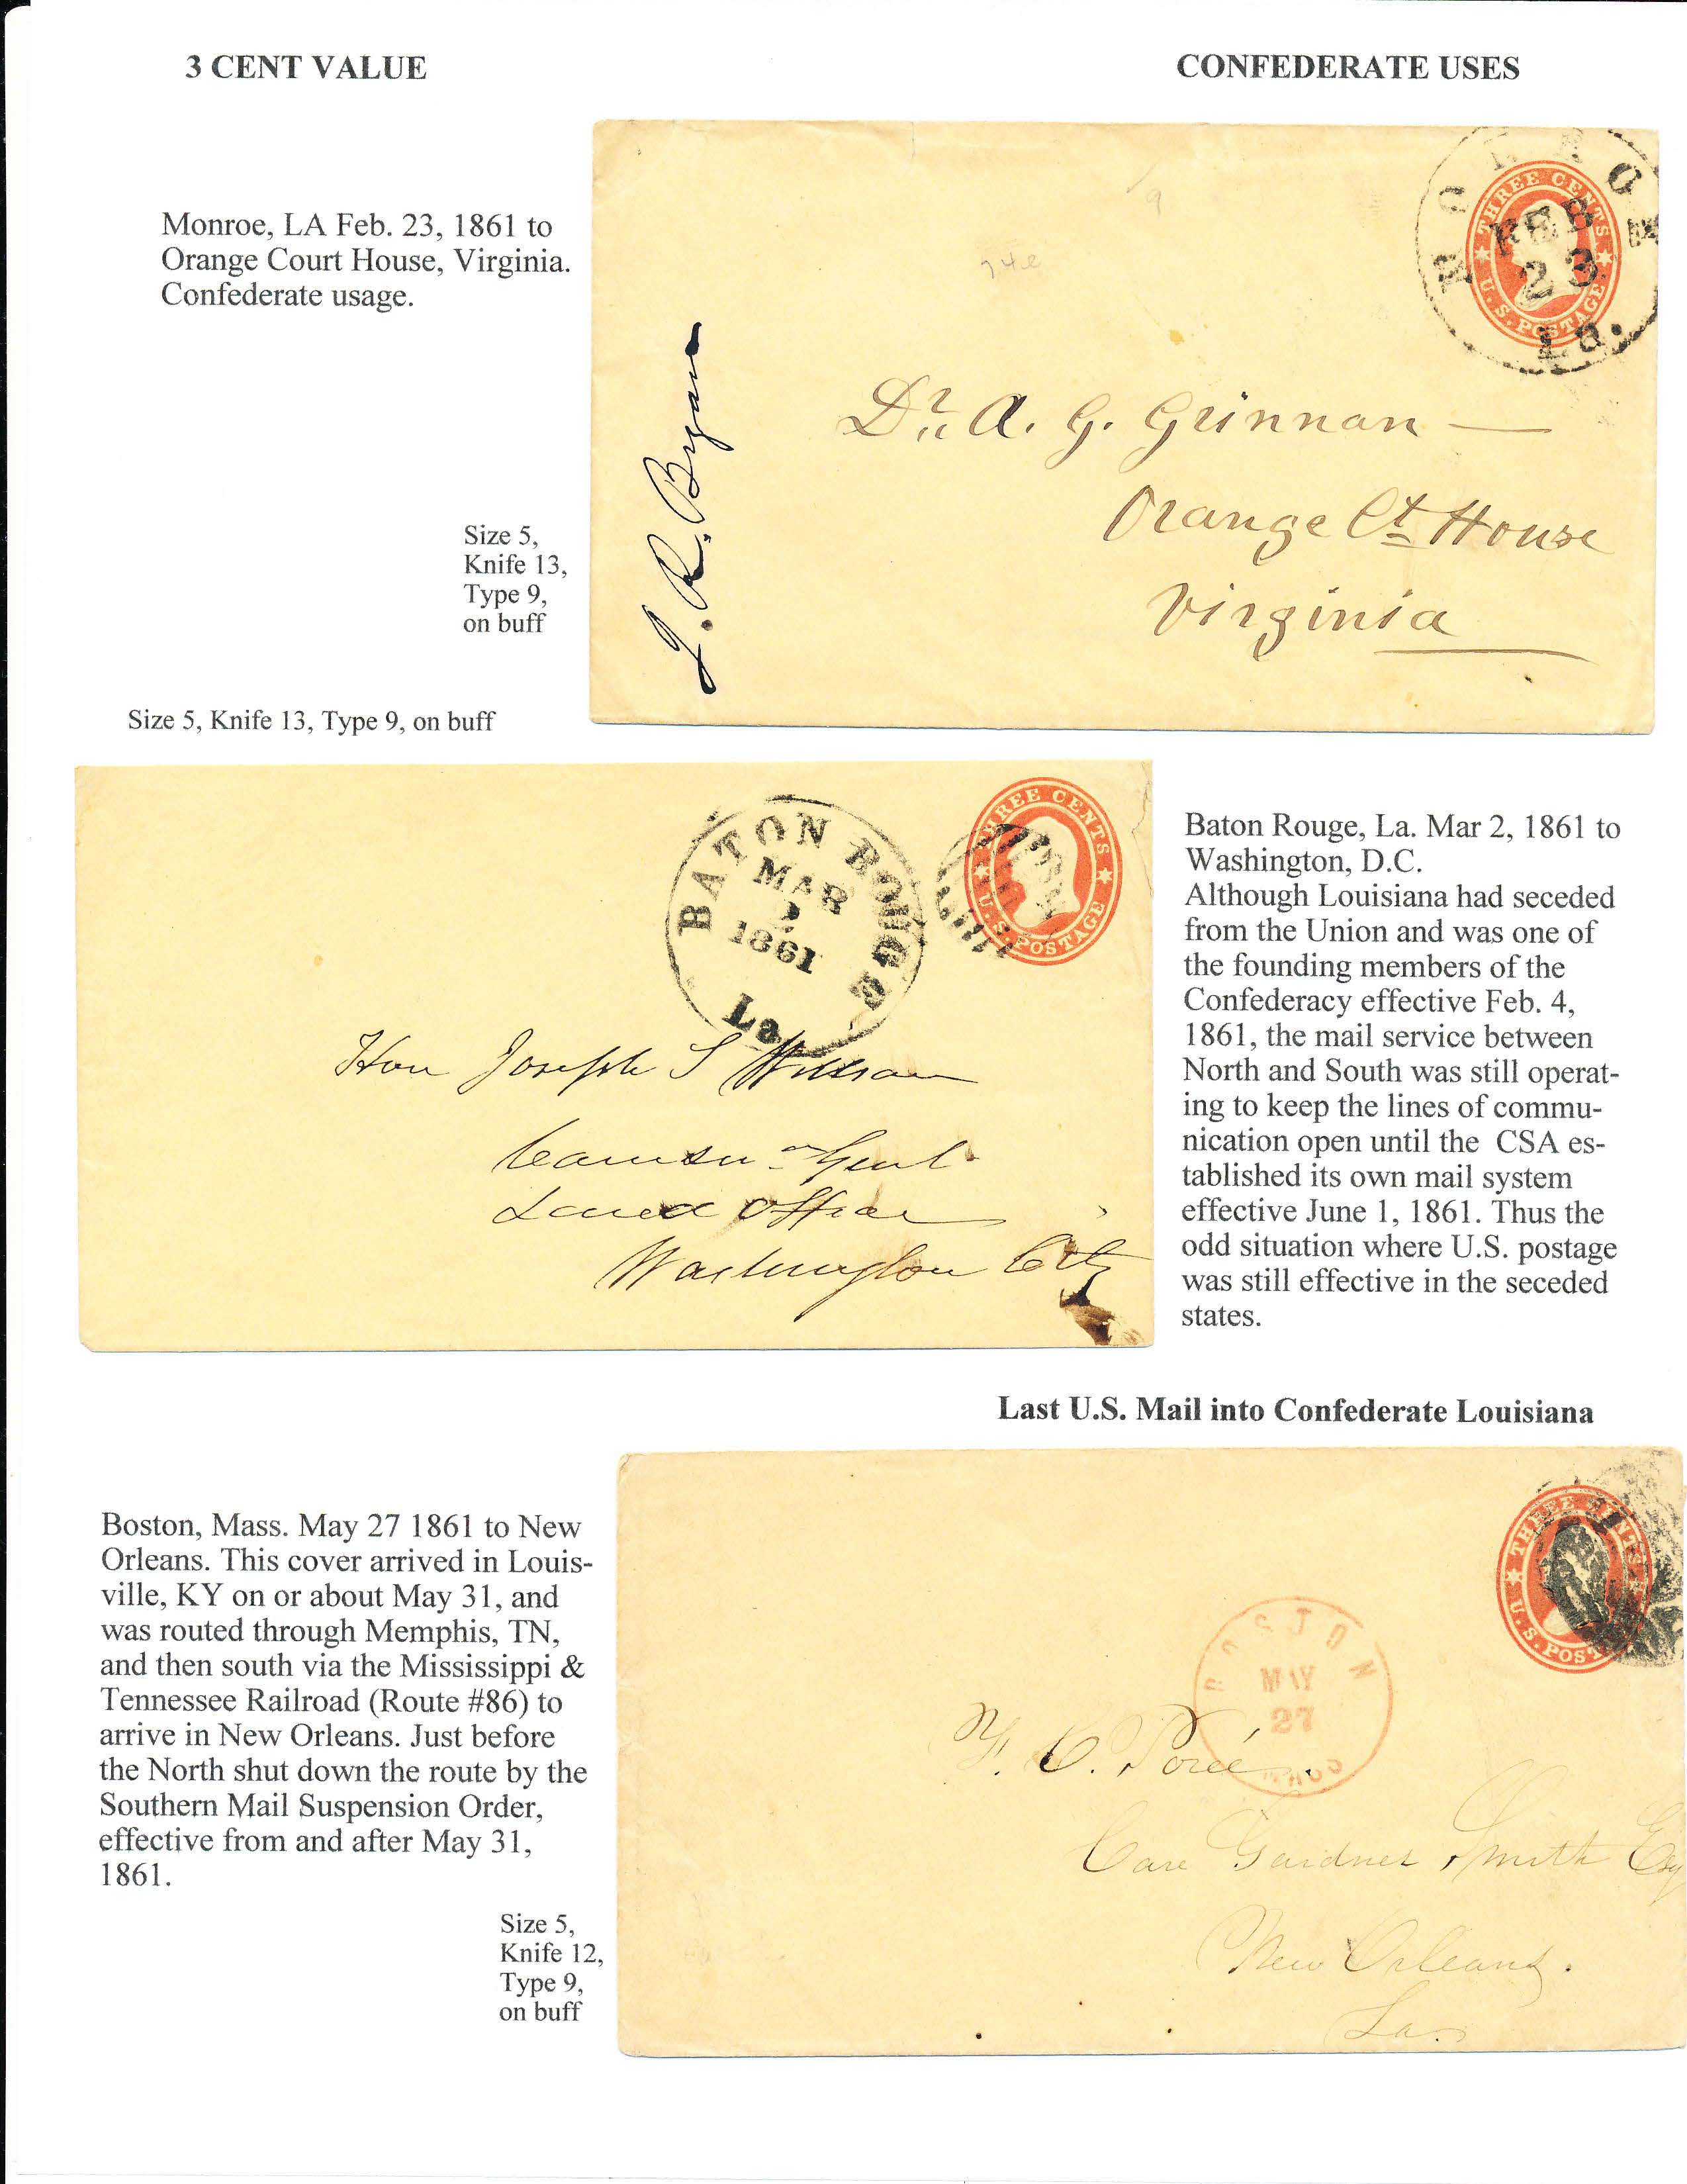 3 CENT VALUE
CONFEDERATE USES
Monroe, LA Feb. 23, 1861 to
Orange Court House, Virginia.
Confederate usage.
MONROE
FEB
23
La.
THREE CENTS
U.S. POSTAGE
Dr. A. G. Grinnan
Orange Ct House
Virginia
J. R. Bryan
Size 5,
Knife 13,
Type 9,
on buff
Size 5, Knife 13, Type 9, on buff
BATON ROUGE
MAR
2
1861
La
THREE CENTS
U.S. POSTAGE
Hon Joseph S Wilson
Land Office
Washington City
Baton Rouge, La. Mar 2, 1861 to
Washington, D.C.
Although Louisiana had seceded
from the Union and was one of
the founding members of the
Confederacy effective Feb. 4,
1861, the mail service between
North and South was still operat-
ing to keep the lines of commu-
nication open until the CSA es-
tablished its own mail system
effective June 1, 1861. Thus the
odd situation where U.S. postage
was still effective in the seceded
states.
Last U.S. Mail into Confederate Louisiana
Boston, Mass. May 27 1861 to New
Orleans. This cover arrived in Louis-
ville, KY on or about May 31, and
was routed through Memphis, TN,
and then south via the Mississippi &
Tennessee Railroad (Route #86) to
arrive in New Orleans. Just before
the North shut down the route by the
Southern Mail Suspension Order,
effective from and after May 31,
1861.
Size 5,
Knife 12,
Type 9,
on buff
THREE CENTS
U.S. POST
BOSTON
MAY
27
MASS
C. Poreé.
Care Gardner Smith Esq
New Orleans.
La.